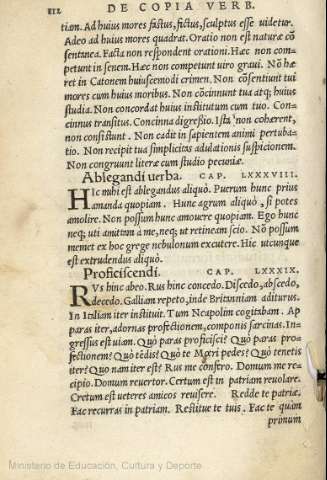 112 DE COPIA VERB.
tiam. Ad huius mores factus, fictus, sculptus esse uidetur.
Adeo ad huius mores quadrat. Oratio non est naturæ cõ
sentanea. Facta non respondent orationi. Hæc non com-
petunt in senem. Hæc non competunt uiro graui. Nõ hæ
ret in Catonem huiuscemodi crimen. Non cõsentiunt tui
mores cum huius moribus. Non cõcinnunt tua atq; huius
studia. Non concordat huius institutum cum tuo. Con-
cinnus transitus. Concinna digressio. Ista non cohærent,
non consistunt. Non cadit in sapientem animi perturba-
tio. Non recipit tua simplicitas adulationis suspicionem.
Non congruunt literæ cum studio pecuniæ.
Ablegandi uerba. CAP. LXXXVIII.
HIc mihi est ablegandus aliquò. Puerum hunc prius
amanda quopiam. Hunc agrum aliquò, si potes
amolire. Non possum hunc amouere quopiam. Ego hunc
neq; uti amittam a me, neq; ut retineam scio. Nõ possum
memet ex hoc grege nebulonum excutere. Hic utcunque
est extrudendus aliquò.
Proficiscendi. CAP. LXXXIX.
RVs hinc abeo. Rus hinc concedo. Discedo, abscedo,
decedo. Galliam repeto, inde Britanniam aditurus.
In Italiam iter instituit. Tum Neapolim cogitabam. Ap
paras iter, adornas profectionem, componis sarcinas. In-
gressus est uiam. Quò paras proficisci? Quò paras pro-
fectionem? Quò tēdis? Quò te Mœri pedes? Quò tenetis
iter? Quo nam iter est? Rus me confero. Domum me re-
cipio. Domum reuertor. Certum est in patriam reuolare.
Cretum est ueteres amicos reuisere. Redde te patriæ.
Fac recurras in patriam. Restitue te tuis. Fac te quàm
primum
Ministerio de Educación, Cultura y Deporte